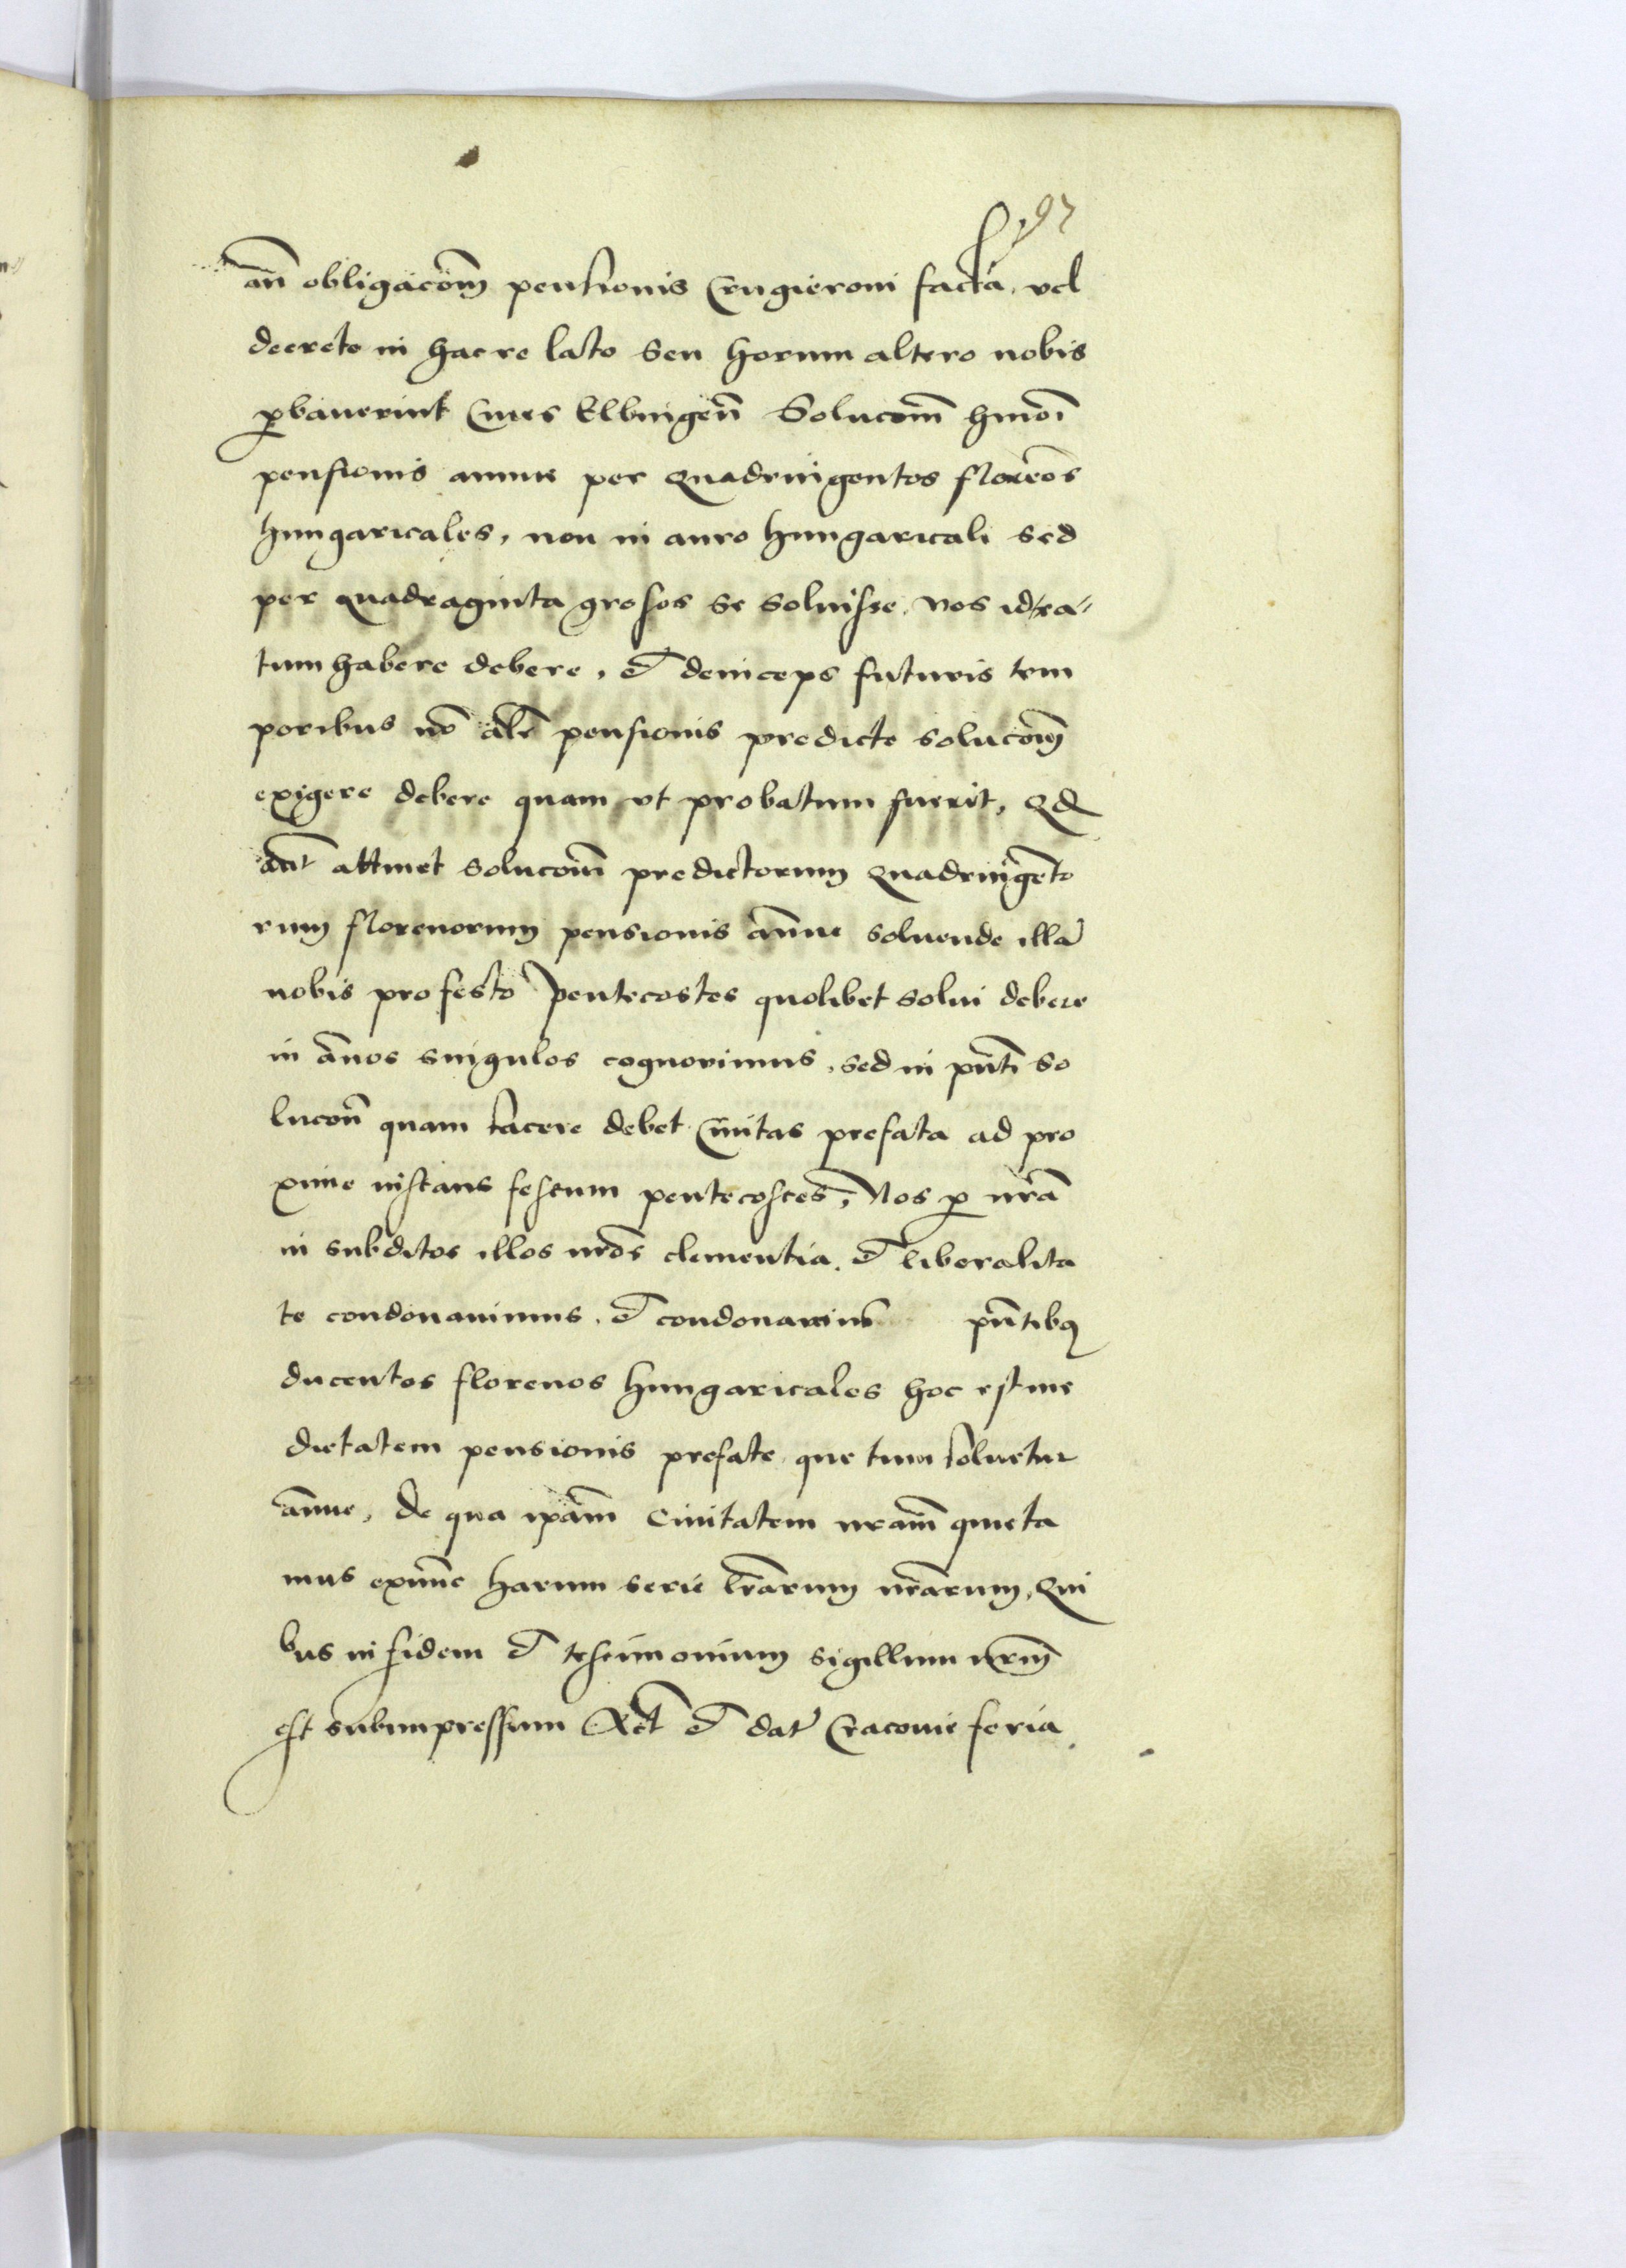 97
añ obligacōm pensionis Crugieroni facta, vel
decreto in hac re lato Seu horum altero nobis
ꝓbauerint Ciues Elbingeñ Solucōm hmōi
pensionis annue per Quadringentos florēos
hungaricales, non in auro hungaricali sed
per quadraginta grosos se soluisse, nos id ra-
tum habere debere, et deinceps futuris tem
poribus nō alr̄ pensionis predicte solucōm
exigere debere quam vt probatum fuerit, Qd
aut̄ attinet solucōm predictorum Quadringēto
rum florenorum pensionis añue soluende illā
nobis pro festo Pentecostes quolibet solui debere
in ānos singulos cognouimus, sed in pn̄ti so
lucōn quam facere debet Ciuitas prefata ad pro
xime instans festum pentecostes, Nos ꝑ nr̄a
in subditos illos nr̄os clementia, et liberalita
te condonauimus, et condonauim9 pn̄tibq
ducentos florenos hungaricales hoc est me
dietatem pensionis prefate que tum soluetur
añue, de qua ip̄am Ciuitatem nr̄am quieta
mus exnunc harum serie lr̄arum nr̄arum, Qui
bus in fidem et testimonium sigillum nr̄m
est subimpressum Act̄ et dat̄ Cracouie feria